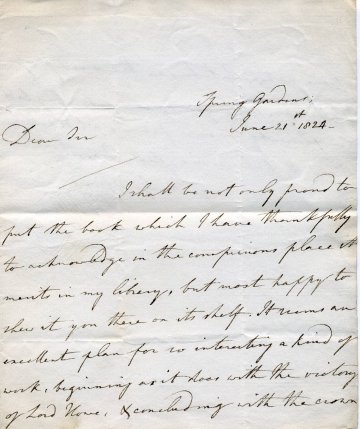 Spring Gardens,
June 21st 1824-
Dear Sir
I shall be not only proud to
put the book which I have thankfully
to acknowledge in the conspicuous place it
merits in my library, but most happy to
shew it you there on its shelf. It seems an
excellent plan for so interesting a kind of
work, beginning as it does with the victory
of Lord Howe, & concluding with the crown